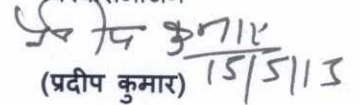 प्रदीप कुमार
15/5/13
(प्रदीप कुमार)